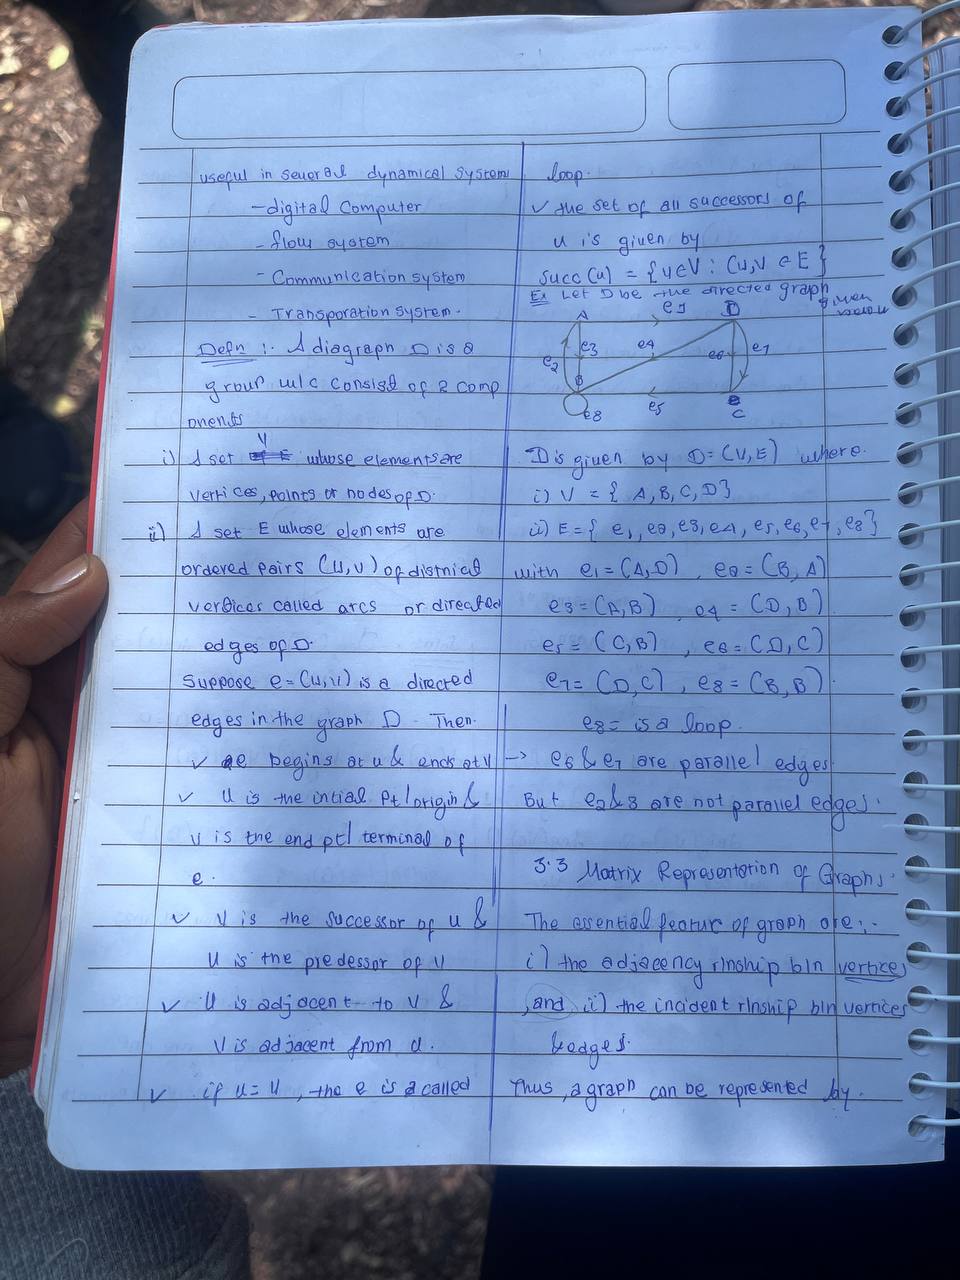 useful in several dynamical system
- digital Computer
- flow system
- Communication system
- Transporation system.
Defn :- A diagraph D is a
group w/c consist of 2 comp
onents
i) A set V whose elements are
vertices, points or nodes of D.
ii) A set E whose elements are
ordered pairs (u,v) of distnical
vertices called arcs or directed
edges of D.
Suppose e = (u,v) is a directed
edges in the graph D. Then.
✓ e begins at u & ends at v
✓ u is the intial pt/origin &
v is the end pt/ terminal of
e.
✓ v is the successor of u &
u is the predessor of v
✓ u is adjacent to v &
v is adjacent from u.
✓ if u = v, the e is a called
loop.
✓ the set of all successors of
u is given by
succ(u) = {v∈V : (u,v ∈ E}
Ex Let D be the directed graph
given below
A e1 D
e2 e3 e4 e6 e7
B e5 C
e8
D is given by D = (V,E) where.
i) V = { A, B, C, D}
ii) E = { e1, e2, e3, e4, e5, e6, e7, e8}
with e1 = (A,D) , e2 = (B, A)
e3 = (A,B) , e4 = (D, B)
e5 = (C,B) , e6 = (D,C)
e7 = (D,C) , e8 = (B,B)
e8 = is a loop.
→ e6 & e7 are parallel edges
But e2 & 3 are not parallel edges.
3.3 Matrix Representation of Graphs.
The essential feature of graph are:-
i) the adjacency r/nship b/n vertices
, and ii) the incident r/nship b/n vertices
& edges.
Thus, a graph can be represented by.